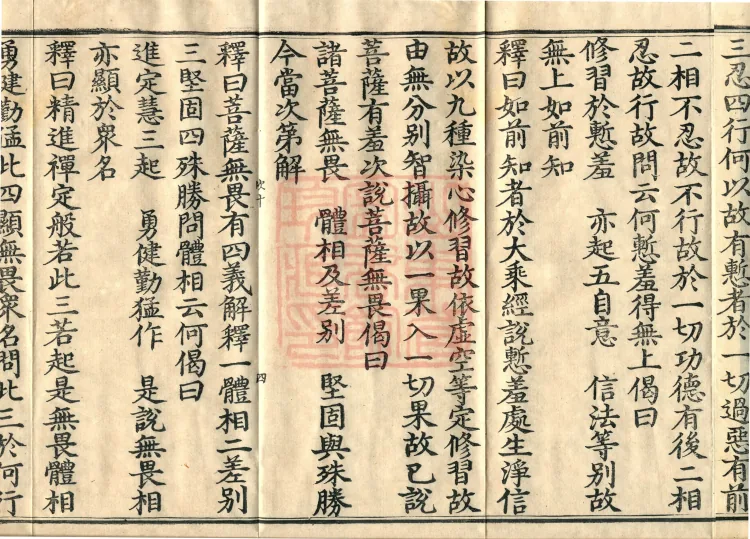 三忍四行何以故有慙者於一切過惡有前
二相不忍故不行故於一切功德有後二相
忍故行故問云何慙羞得無上偈曰
修習於慙羞　亦起五自意　信法等別故
無上如前知
釋曰如前知者於大乘經說慙羞處生淨信
故以九種染心修習故依虛空等定修習故
由無分別智攝故以一果入一切果故已說
菩薩有羞次說菩薩無畏偈曰
諸菩薩無畏　體相及差別　堅固與殊勝
今當次第解
釋曰菩薩無畏有四義解釋一體相二差別
三堅固四殊勝問體相云何偈曰
進定慧三起　勇健勤猛作　是說無畏相
亦顯於衆名
釋曰精進禪定般若此三若起是無畏體相
勇健勤猛此四顯無畏衆名問此三於何行
四